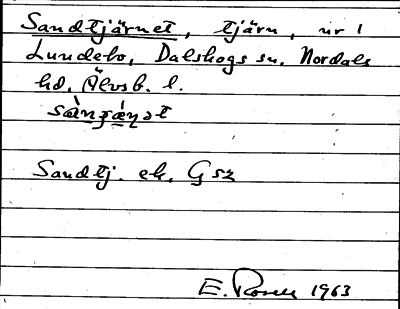 Sandtjärnet, tjärn, nr 1
Lundebo, Dalskogs sn. Nordals
hd. Älvsb. l.
Sandtj. ek. G 52
E. Rosell 1963